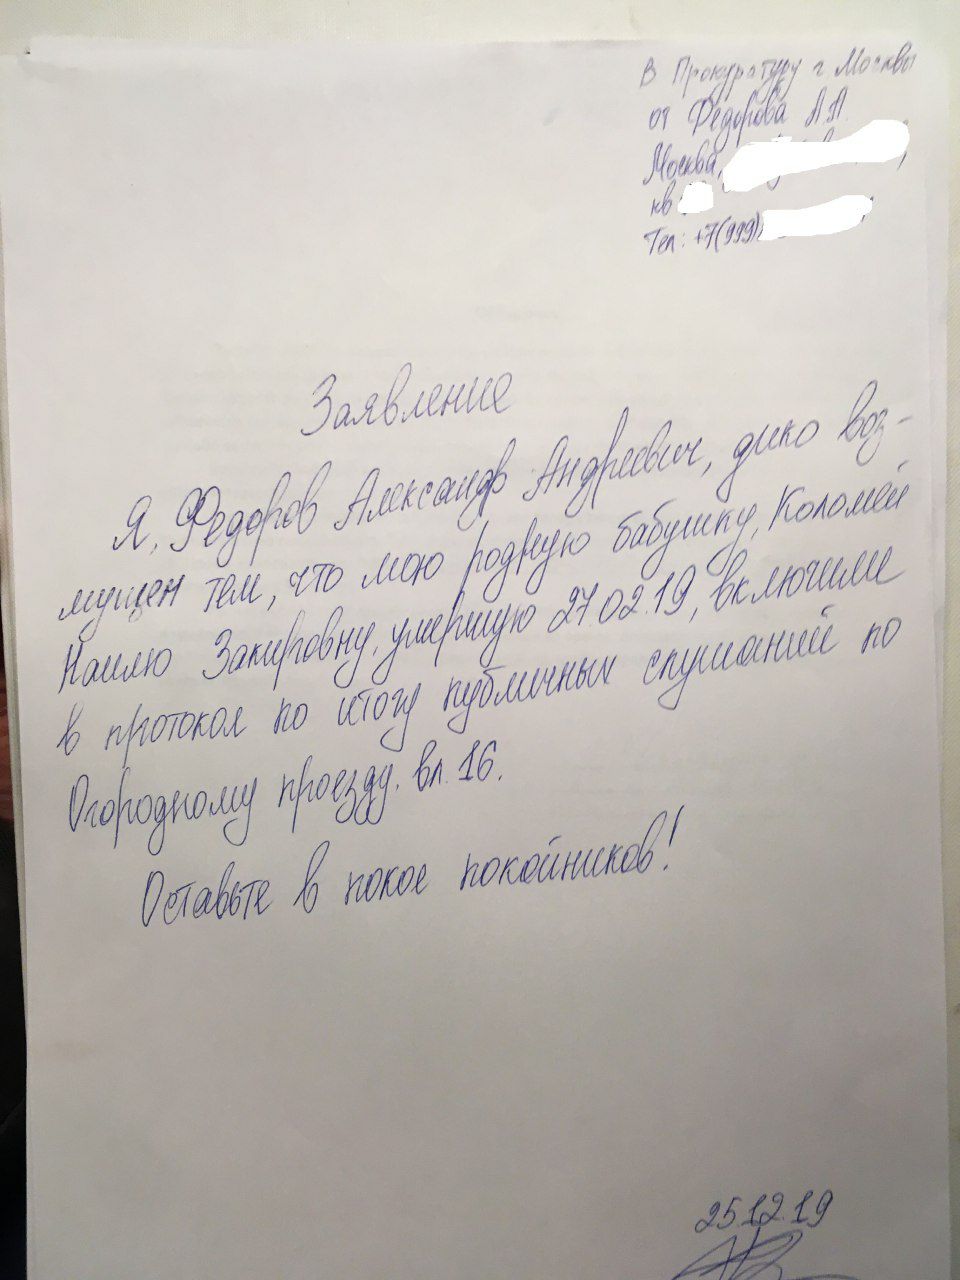 В Прокуратуру г. Москвы
от Федорова А.А.
Москва,
кв
Тел: +7(999)
Заявление
Я, Федоров Александр Андреевич, дико воз-
мущен тем, что мою родную бабушку, Коломей
Наилю Закировну, умершую 27.02.19, включили
в протокол по итогу публичных слушаний по
Огородному проезду, вл. 16.
Оставьте в покое покойников!
25.12.19